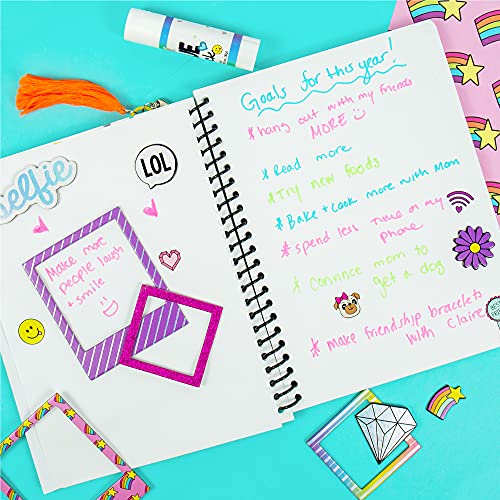 selfie
LOL
Make more
people laugh
+ smile
Goals for this year!
hang out with my friends
MORE
Read more
Try new foods
Bake + Cook more with Mom
spend less time on my
phone
Convince mom to
get a dog
make friendship bracelets
with Claire